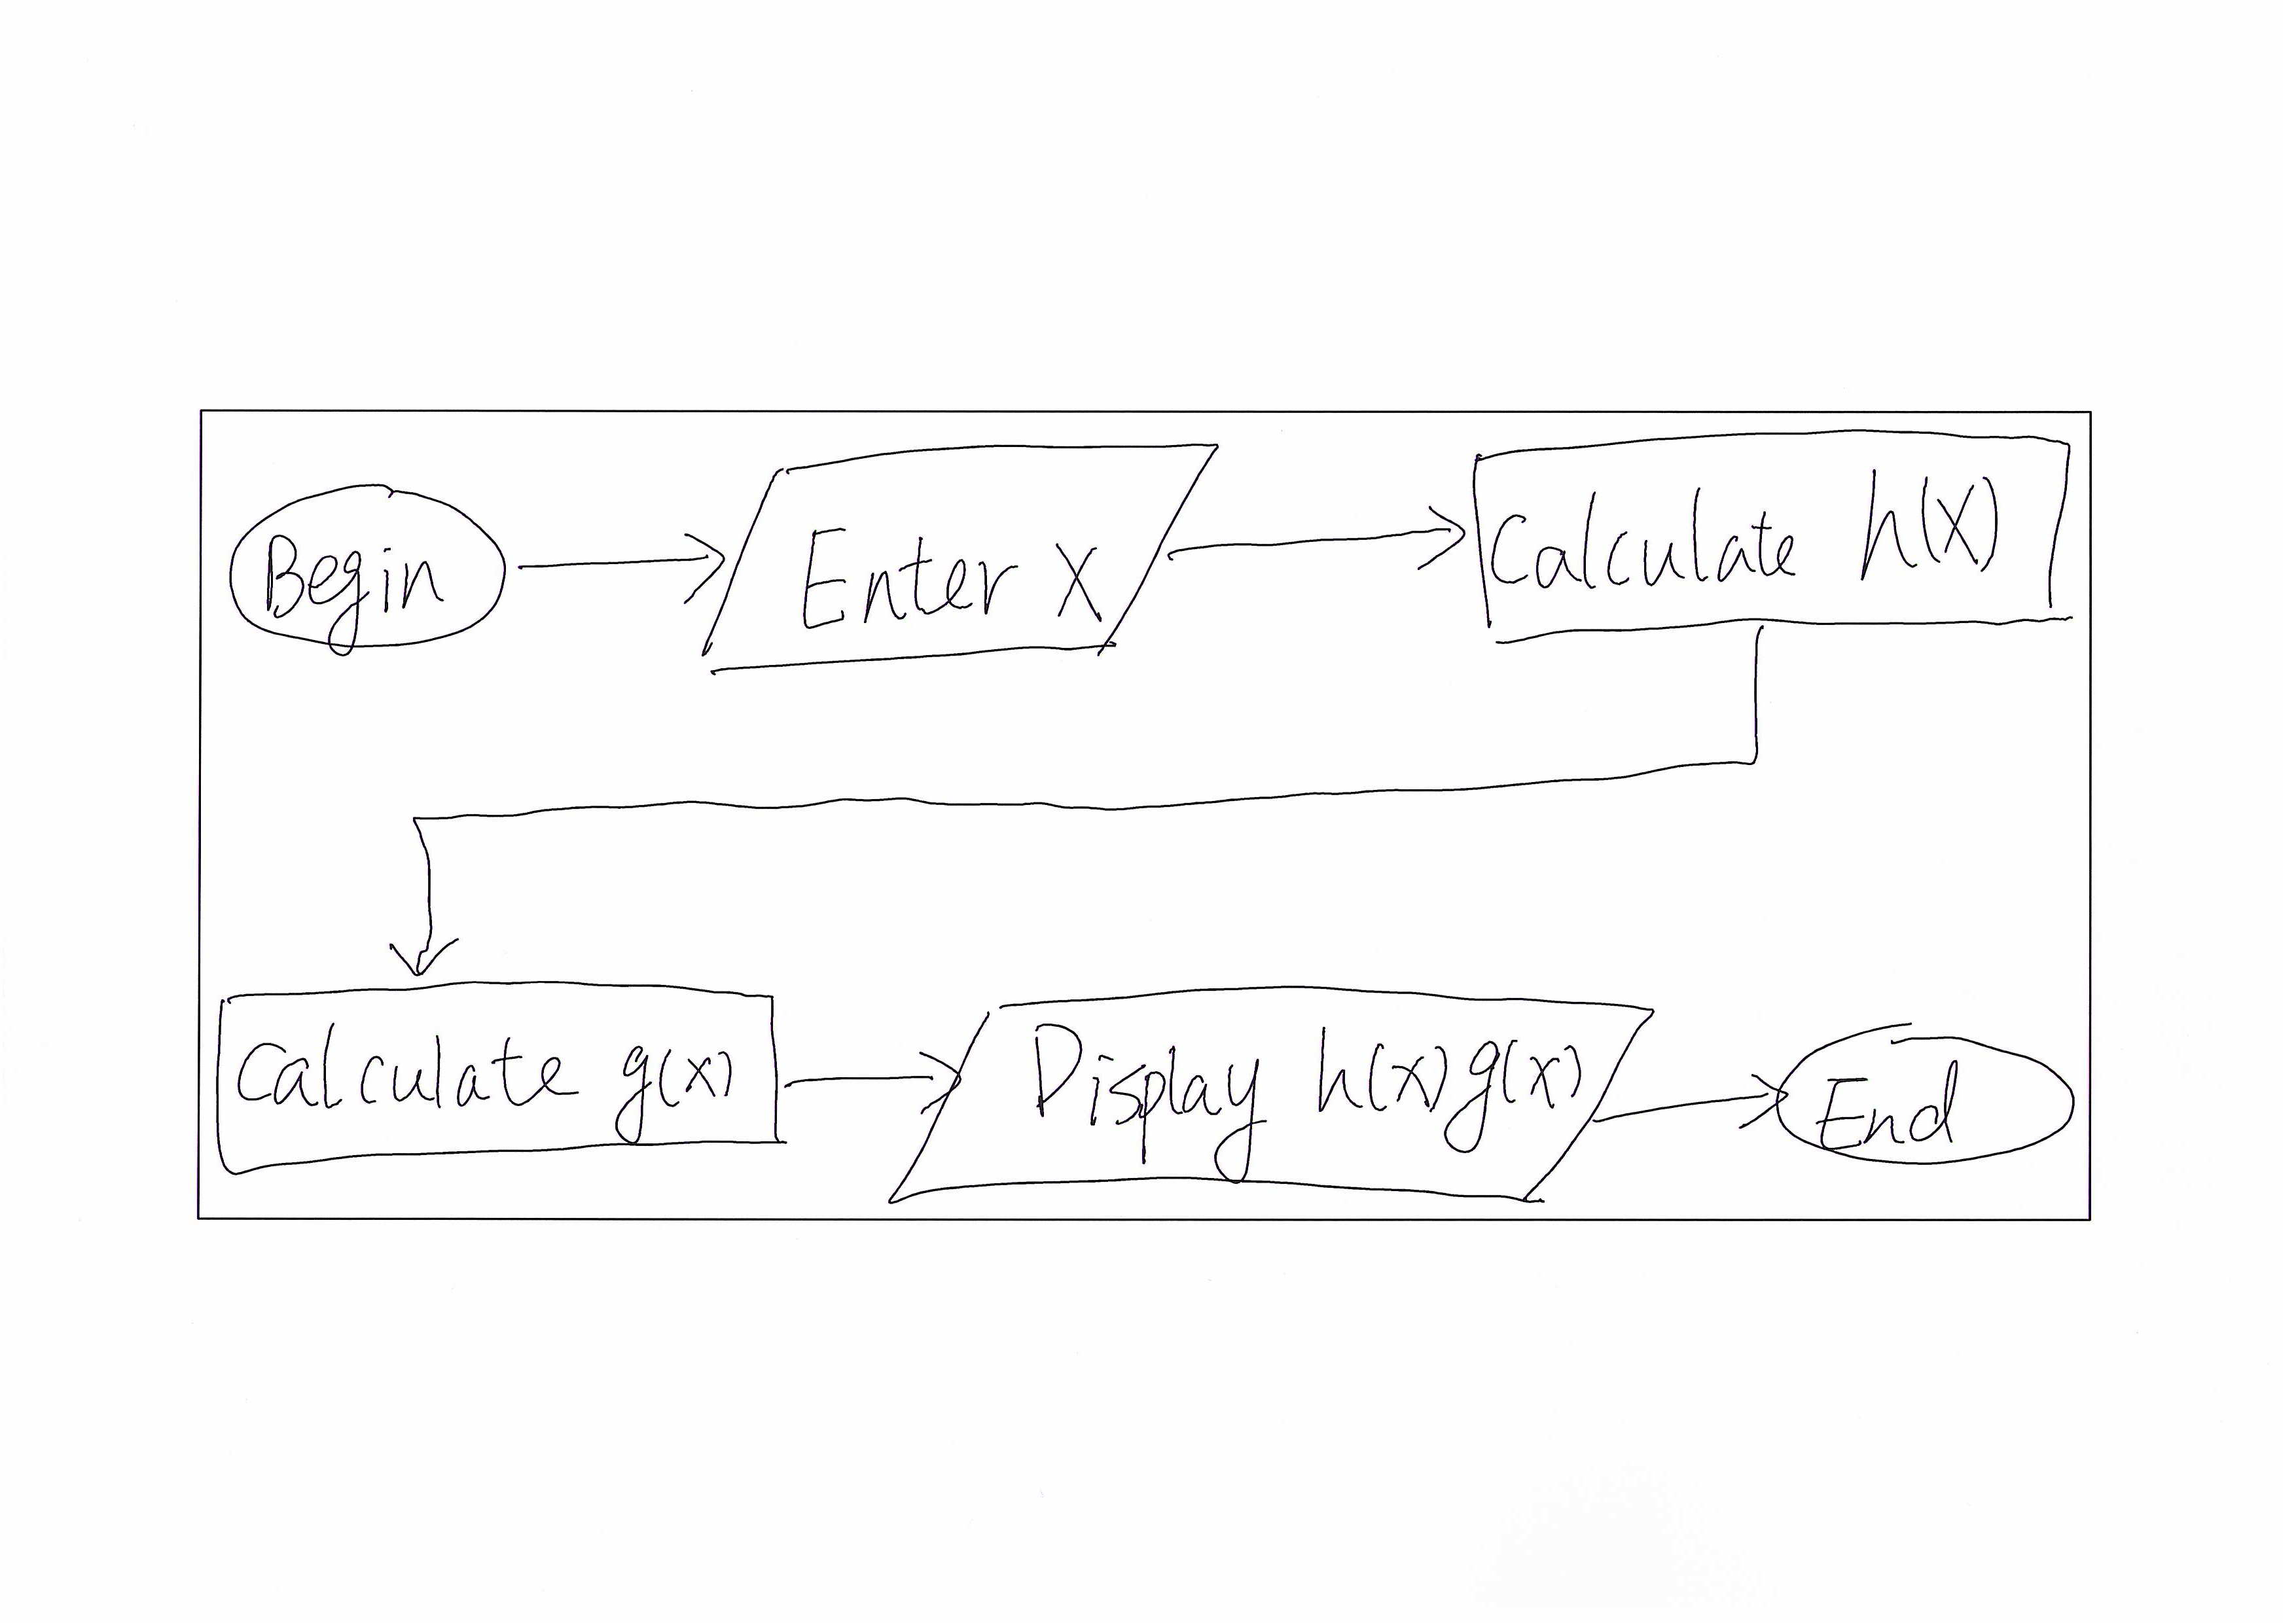 Begin
Enter X
Calculate h(X)
Calculate g(x)
Display h(x)g(x)
End